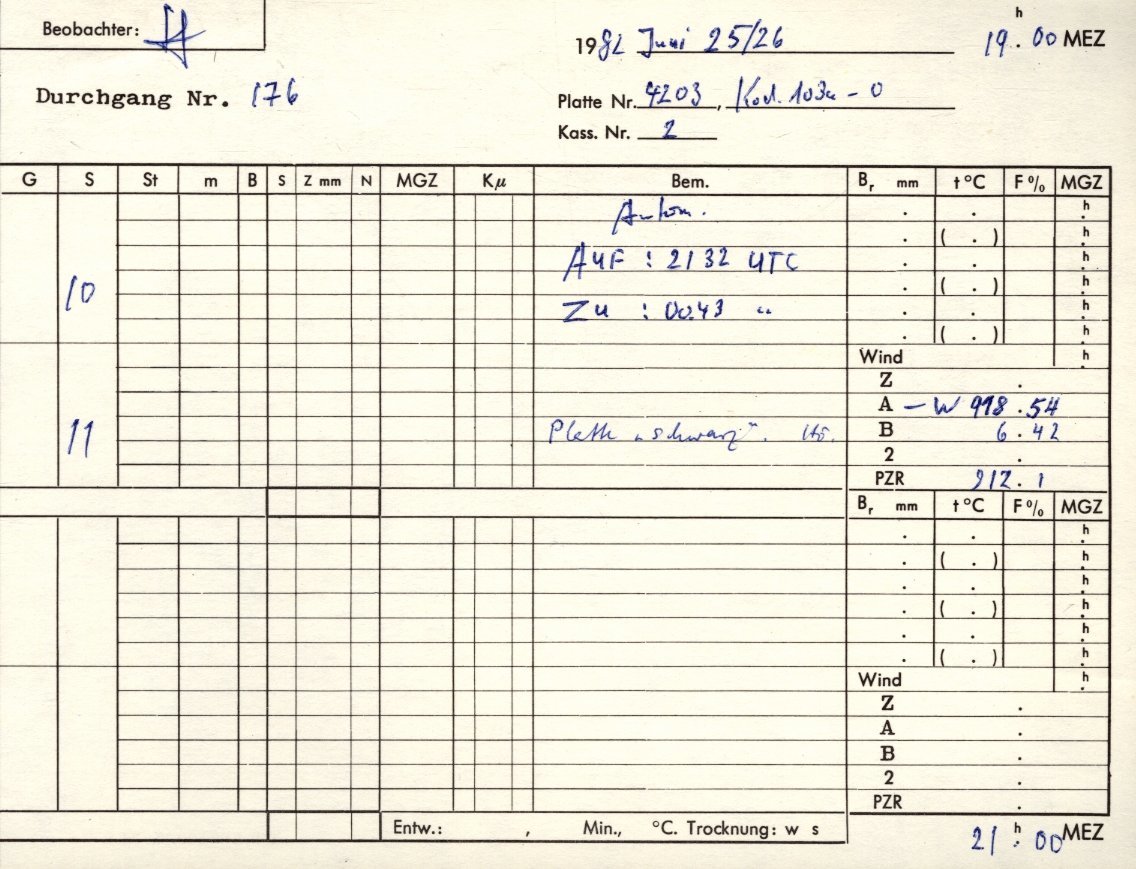 Beobachter:
1982 Juni 25/26 19 h . 00 MEZ
Durchgang Nr. 176
Platte Nr. 4203, Kod. 103a-O
Kass. Nr. 2
G S St m B S Z mm N MGZ Kµ Bem. Br mm t °C F % MGZ
. . h
Autom.
. ( . ) h
AUF : 2132 UTC
. . h
10
. ( . ) h
Zu : 0043 "
. . h
( . ) h
Wind h
Z .
A – W 918 . 54
11 Platte „schwarz".
B 6 . 42
2 .
PZR 912 . 1
Br mm t °C F % MGZ
. . h
. ( . ) h
. . h
. ( . ) h
. . h
. ( . ) h
Wind h
Z .
A .
B .
2 .
PZR .
Entw.: , Min., °C. Trocknung: w s
21 h . 00 MEZ